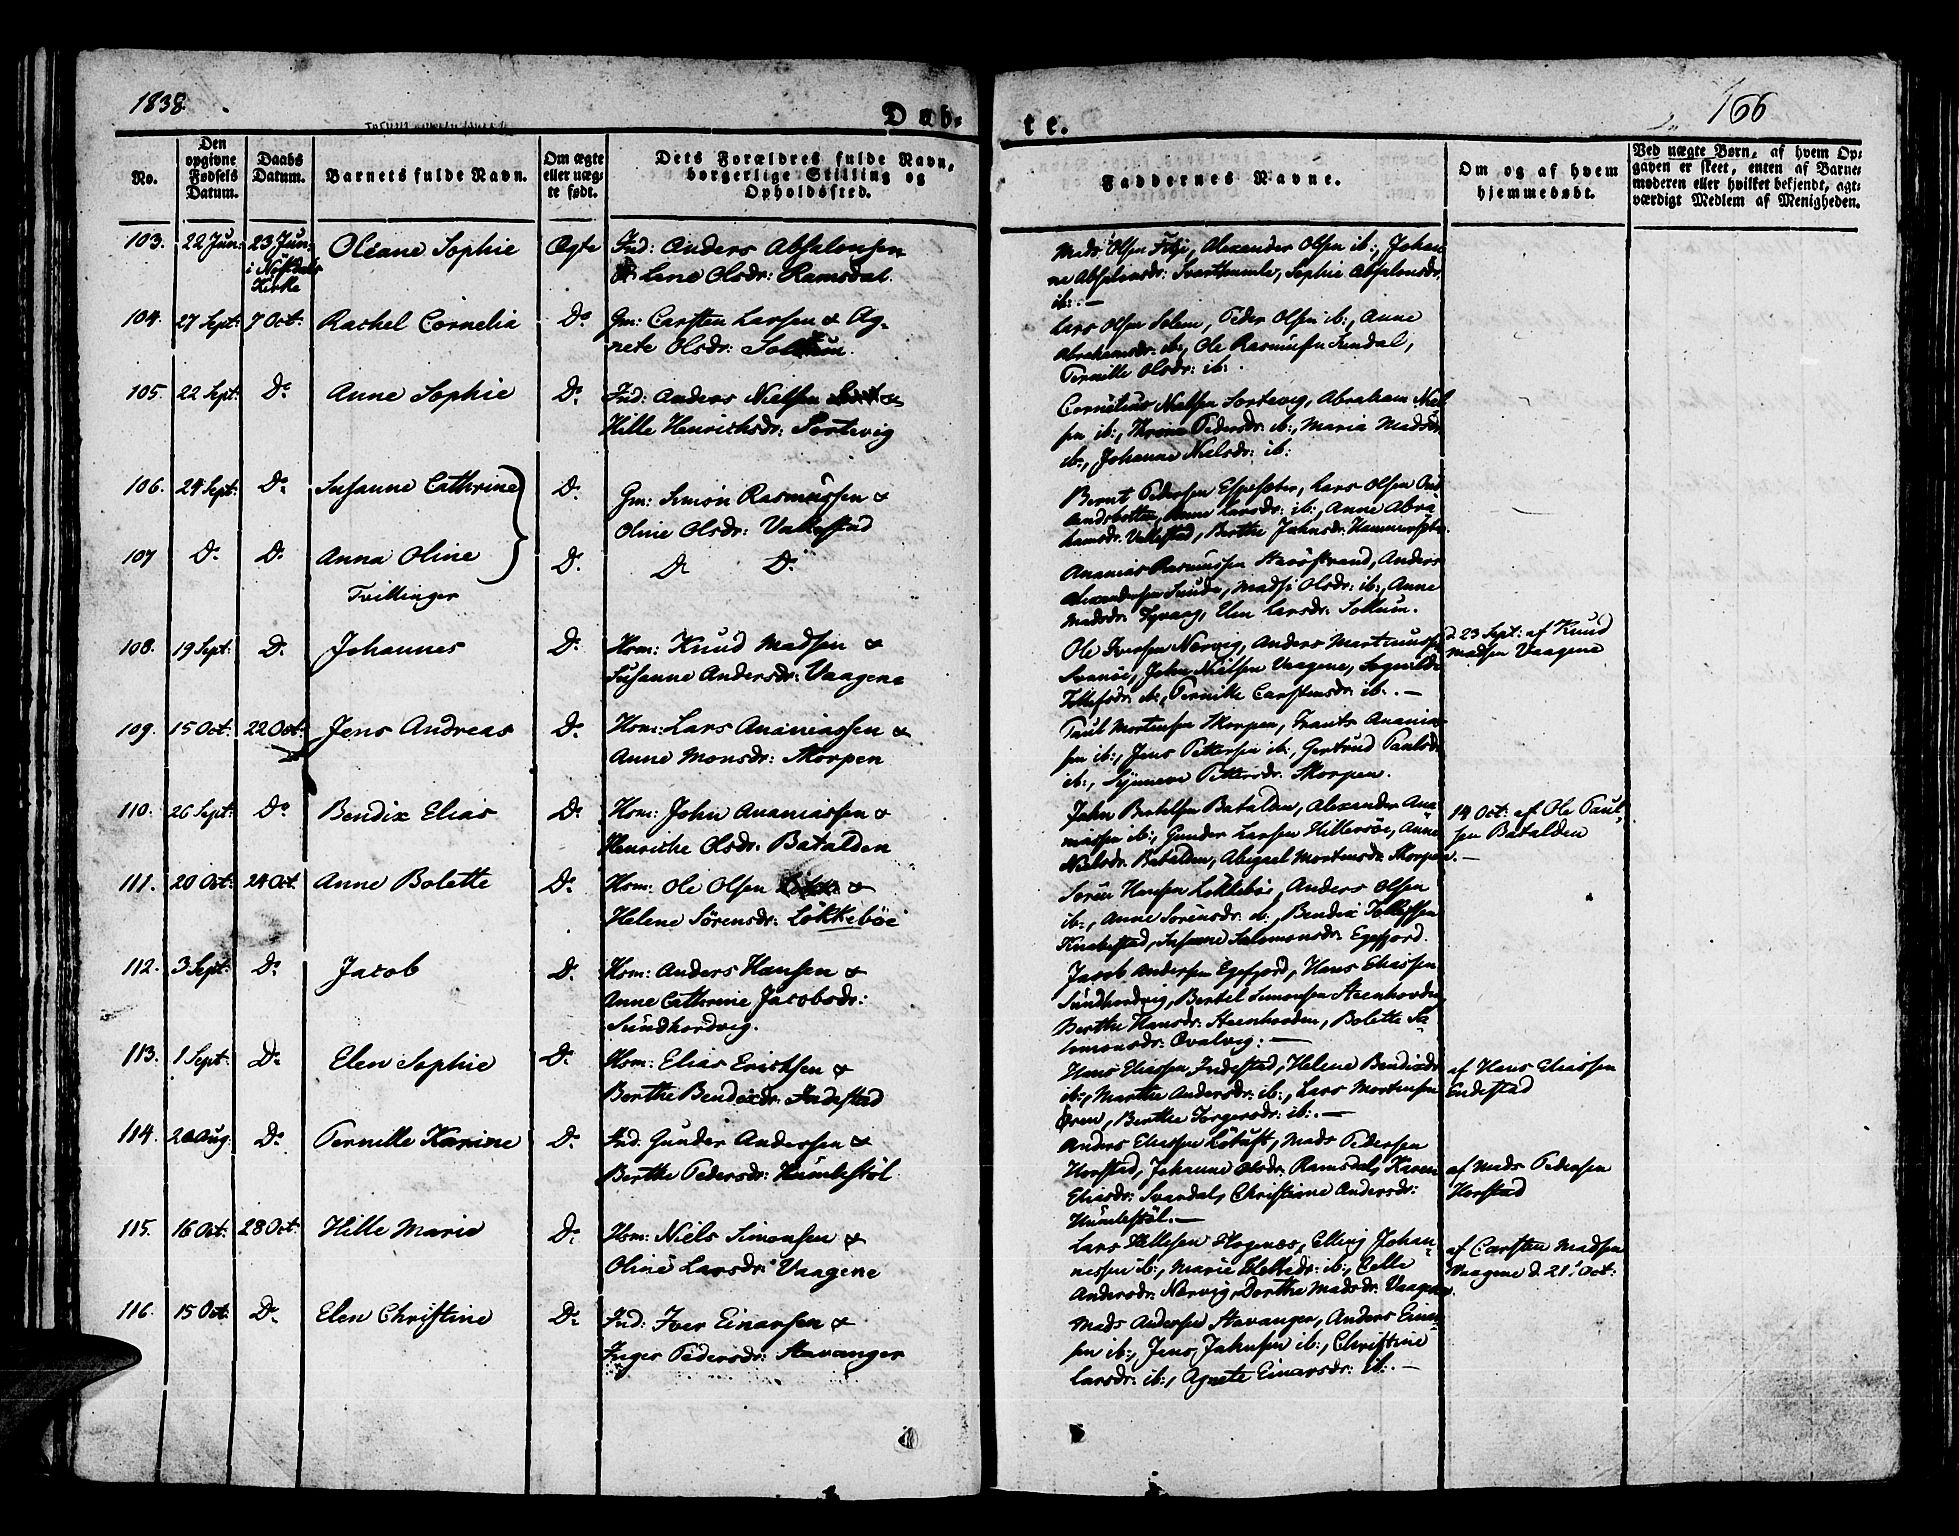 1838.
Døb-
te.
166
No.
Den opgivne Fødsels Datum.
Daabs Datum.
Barnets fulde Navn.
Om ægte eller uægte født.
Dets Forældres fulde Navn, borgerlige Stilling og Opholdssted.
Faddernes Navne.
Om og af hvem hjemmedøbt.
Ved uægte Børn, af hvem Opgaven er skeet, enten af Barnemoderen eller hvilket bekjendt, agtværdigt Medlem af Menigheden.
103. 22 Jun: 23 Jun: i Kirke Oleane Sophie Ægte Ind: Anders Absalonsen
& Lene Olsdr: Ramsdal.
Mads Olsen, Alexander Olsen ib:, Johan
ne Absalonsdr: Svarthumle, Sophie Absalonsdr
ib: —
104. 27 Sept: 7 Oct: Rachel Cornelia Do Gm: Carsten Larsen & Ag-
nete Olsdr:
Lars Olsen Solem, Peder Olsen ib:, Anne
Abrahamsdr: ib:, Ole Rasmusen Sundal,
Pernille Olsdr: ib:.
105. 22 Sept: Do Anne Sophie Do Ind: Anders Nielsen
Hille Henrichsdr: Sortevig
Cornelius Nielsen Sortevig, Abraham Niel
sen ib:, Pedersdr: ib:, Maria Madsdr
ib:, Johanne Nielsdr: ib:
106. 24 Sept: Do Susanne Cathrine Do Gm: Simon Rasmussen &
Oline Olsdr: Vallestad
Bernt Pedersen Espesæter, Lars Olsen
Larsdr: ib:, Anne Abra
hamsdr: Vallestad, Berthe Jahnsdr: Hammersæter.
107 Do Do Anna Oline Do Do Do
Tvillinger
Ananias Rasmussen Stavøstrand, Anders
Alexandersen Sunde, Madsi Olsdr: ib:, Anne
Madsdr: Lyvaag, Elen Larsdr:
108. 19 Sept: Do Johannes Do Hsm: Knud Madsen &
Susanne Andersdr: Vaagene
Ole Iversen Nervig, Anders Martinus
Svanöe, John Nielsen Vaagene,
Tollefsdr: ib:, Pernille Carstensdr: ib: —
d. 23 Sept: af Knud
Madsen Vaagene
109. 15 Oct: 22 Oct: Jens Andreas Do Hsm: Lars Ananiassen &
Anne Monsdr: Skorpen
Paul Mortensen Skorpen, Frants Anania
sen ib:, Jens Pettersen ib:, Gertrud Paulsdr
ib:, Synneve Pettersdr: Skorpen.
110. 26 Sept: Do Bendix Elias Do Hsm: John Ananiassen &
Henriche Olsdr: Batalden
John Bertelsen Batalden, Alexander Ana
niassen ib:, Gunder Larsen Hillersøe, Anne
Nielsdr: Batalden, Abigael Mortensdr: Skorpen —
14 Oct: af Ole Paul-
sen Batalden
111. 20 Oct: 24 Oct. Anne Bolette Do Hsm: Ole Olsen &
Helene Sörensdr: Lökkeböe
Sören Hansen Lökkeböe, Anders Olsen
ib:, Anne Sörensdr: ib:, Bendix Tollefsen
Knabestad, Susanne Salomonsdr: Egefjord.
112. 3 Sept: Do Jacob Do Hsm: Anders Hansen &
Anne Cathrine Jacobsdr:
Sundhordvig.
Jacob Andersen Egefjord, Hans Eliassen
Sundhordvig, Bertel Simonsen Steenhovden
Berthe Hansdr: Steenhovden, Bolette Sa
lomonsdr: Qvalvig: —
113. 1 Sept: Do Elen Sophie Do Hsm: Elias Erichsen &
Berthe Bendixdr: Indestad
Hans Eliassen Indestad, Helene Bendixdr
ib:, Marthe Andersdr: ib:, Lars Mortensen
Øren, Berthe Torgersdr: ib: —
af Hans Eliassen
Endestad
114. Aug: Do Pernille Karine Do Ind: Gunder Andersen &
Berthe Pedersdr: Humlestöl
Anders Eliassen Lötuft, Mads Pedersen
Horstad, Johanne Olsdr: Ramsdal, Karen
Eliasdr: Svardal, Christine Andersdr:
Humlestöl. —
af Mads Pedersen
Horstad
115. 16 Oct: 28 Oct: Hille Marie Do Hsm: Niels Simonsen &
Oline Larsdr: Vaagene
Lars Hogenæs, Elling Johan-
nessen ib:, Marie ib:, Celle
Andersdr: Nervig, Dorthe Madsdr: Vaagene.
af Carsten Madsen
Vaagene d. 21 Oct:
116. 15 Oct: Do Elen Christine Do Ind: Iver Einarsen &
Inger Pedersdr: Stavanger
Mads Andersen Stavanger, Anders Einar
sen ib:, Jens Jahnsen ib:, Christine
Larsdr: ib:, Agnete Einarsdr: ib: —